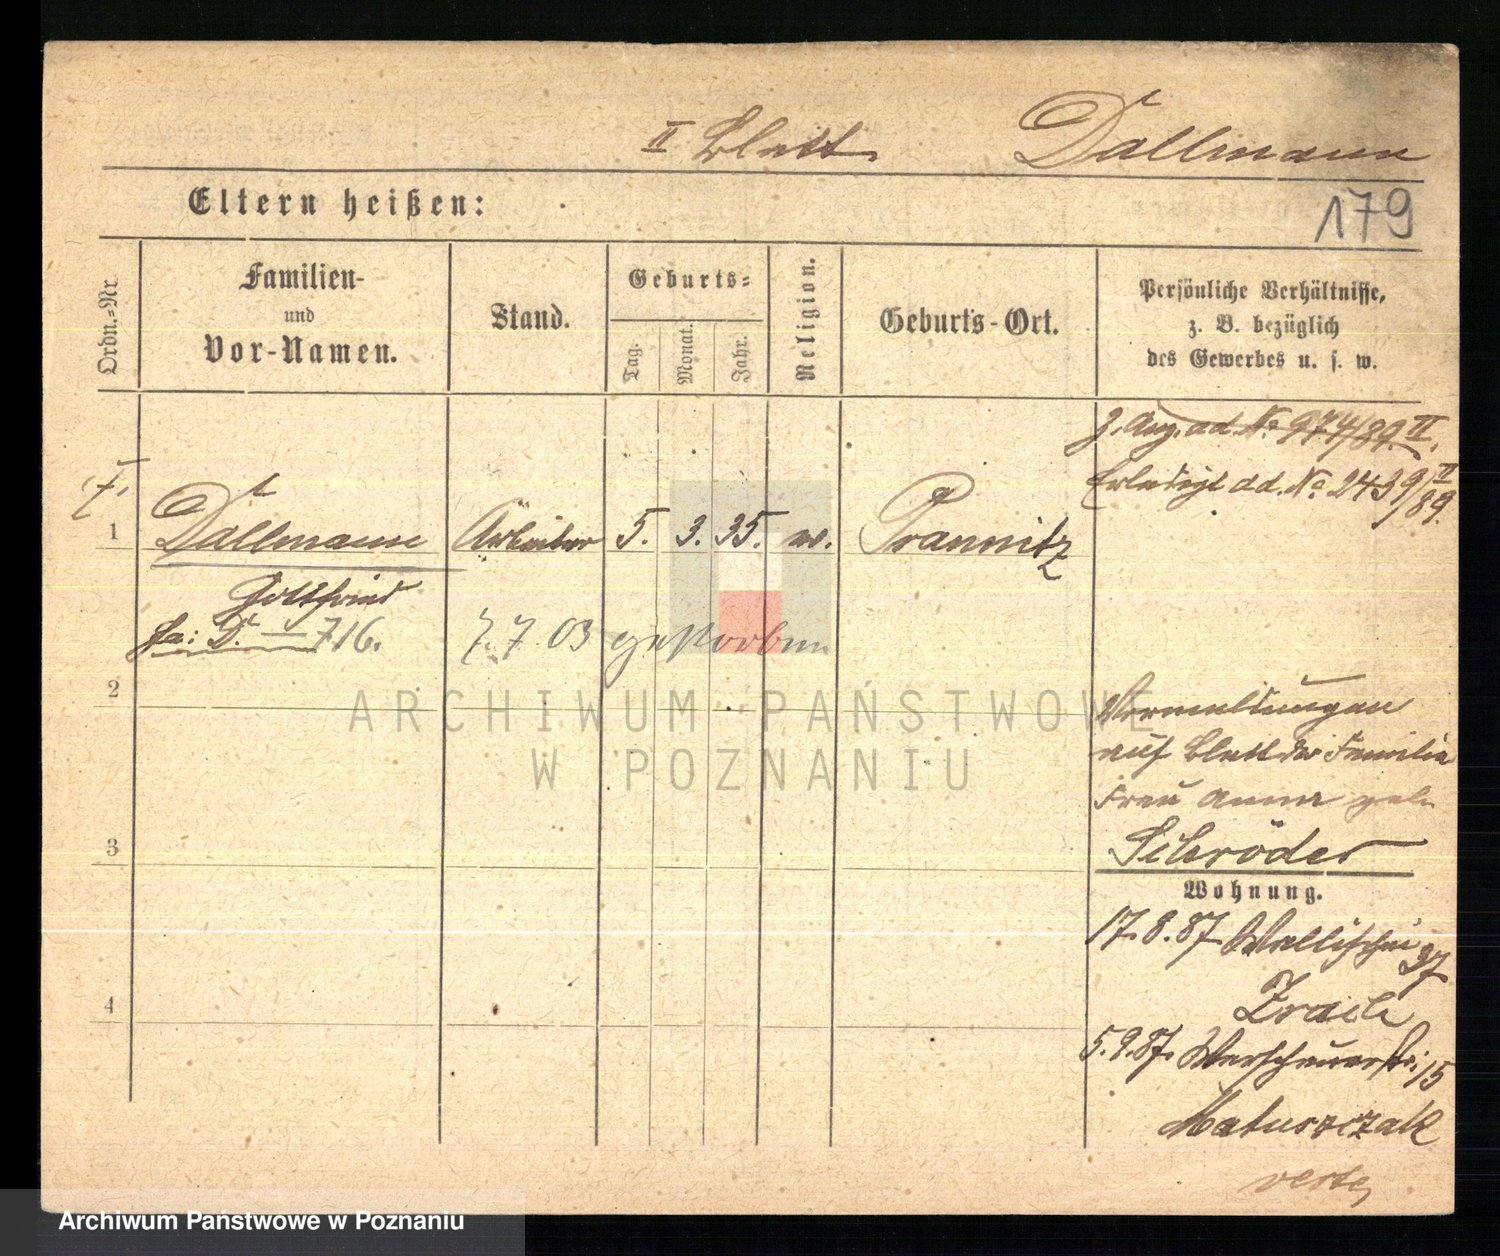 II Blatt Dallmann
Eltern heißen:
179
Ordn.-Nr.
Familien-
und
Vor-Namen.
Stand.
Geburts-
Tag.
Monat.
Jahr.
Religion.
Geburts-Ort.
Persönliche Verhältnisse,
z. B. bezüglich
des Gewerbes u. s. w.
ad. No 974/89. II.
Erledigt ad. No 2439/89. II
1 Dallmann Arbeiter 5. 3. 35. Prannitz
Gottfried
D. — 716. 7. 7 03 gestorben
2
ARCHIWUM PAŃSTWOWE
W POZNANIU
Vermeldungen
auf Blatt der Familie
Frau Anna geb.
3 Schröder
Wohnung.
17.8.87 Wallischei 37
4
5.9.87. 15
Matuszczak
verte
Archiwum Państwowe w Poznaniu